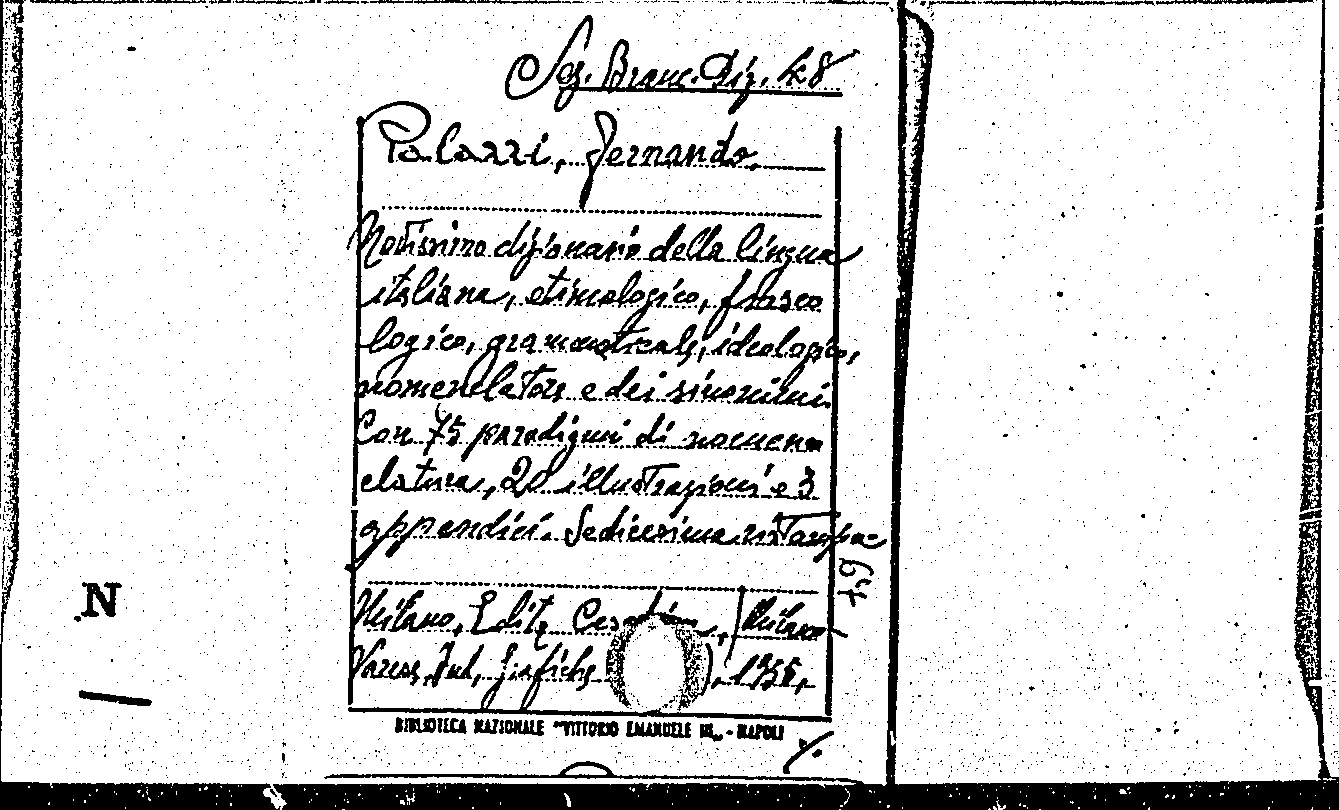 Sez. Branc. Diz. 48
Palazzi, Fernando.
Novissimo dizionario della lingua
italiana, etimologico, fraseo
logico, grammaticale, ideologico,
nomenclatore e dei sinonimi.
Con 75 paradigmi di nomen
clatura, 20 illustrazioni e 3
appendici. Sedicesima ristampa
Milano, Edit. Ceschina, (Milano
Varese, Ind. Grafiche ), 1955.
N
BIBLIOTECA NAZIONALE "VITTORIO EMANUELE III„ - NAPOLI